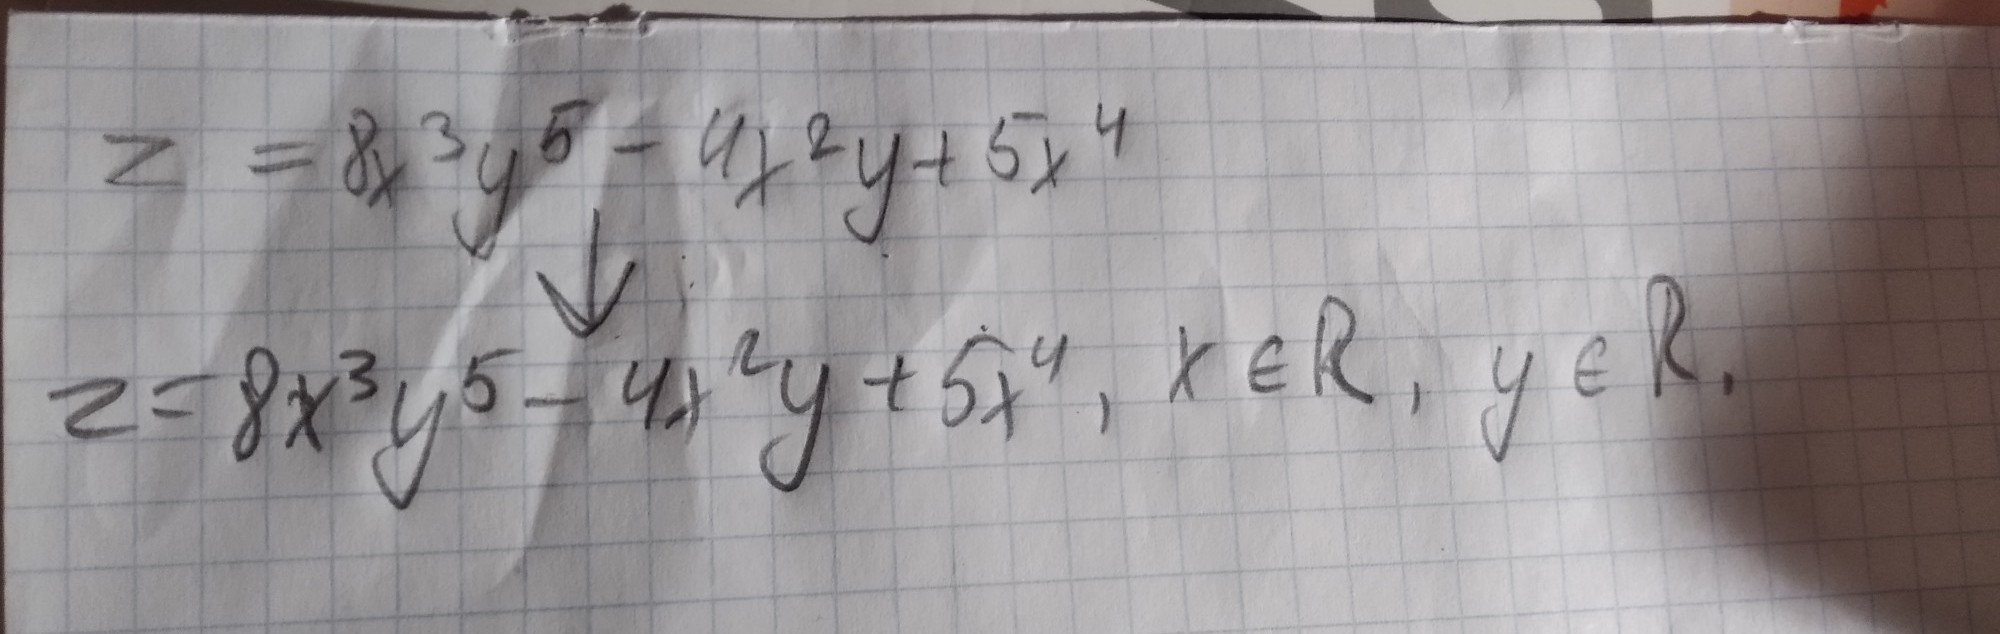 z = 8x³y⁵ - 4x²y + 5x⁴
↓
z = 8x³y⁵ - 4x²y + 5x⁴, x ∈ R, y ∈ R.